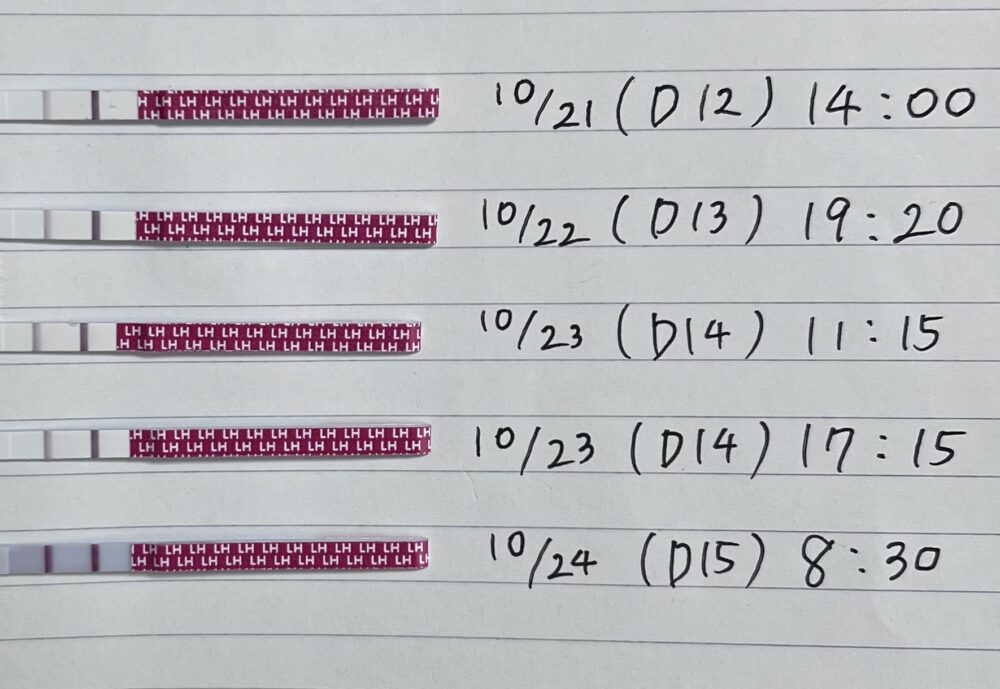 LH LH LH LH LH LH LH LH LH LH LH LH 10/21 (D12) 14:00
LH LH LH LH LH LH LH LH LH LH LH LH 10/22 (D13) 19:20
LH LH LH LH LH LH LH LH LH LH LH LH 10/23 (D14) 11:15
LH LH LH LH LH LH LH LH LH LH LH LH 10/23 (D14) 17:15
LH LH LH LH LH LH LH LH LH LH LH LH 10/24 (D15) 8:30